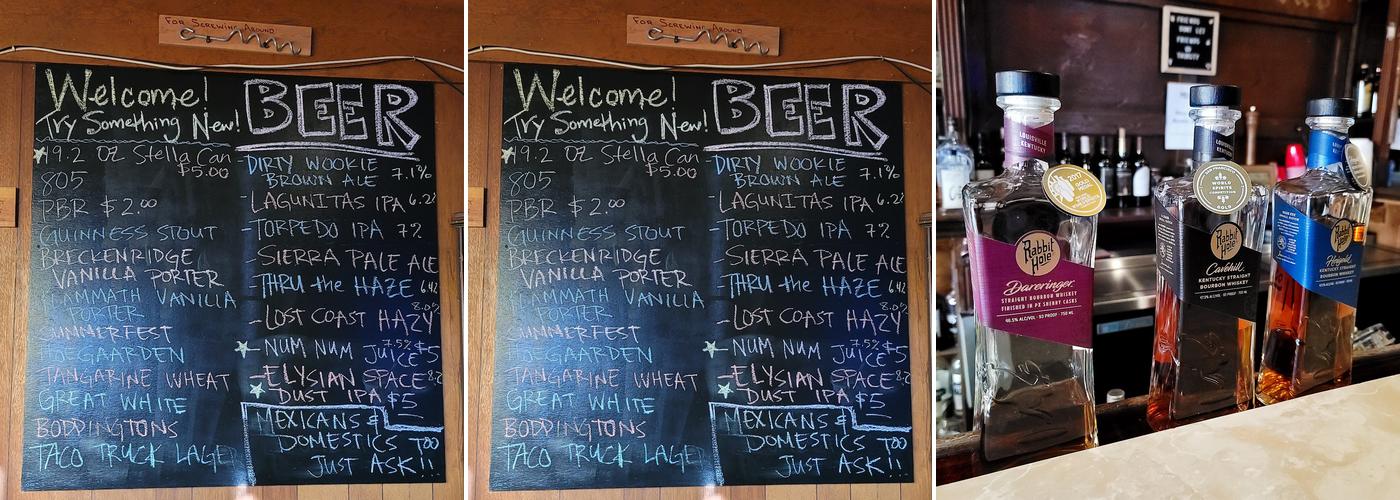 For Screwing Around
Welcome!
Try Something New!
19.2 OZ Stella Can
$5.00
805
PBR $2.00
GUINNESS STOUT
BRECKENRIDGE
VANILLA PORTER
MAMMATH VANILLA
PORTER
SUMMERFEST
HOEGAARDEN
TANGARINE WHEAT
GREAT WHITE
BODDINGTONS
TACO TRUCK LAGER
BEER
-DIRTY WOOKIE
BROWN ALE 7.1%
-LAGUNITAS IPA 6.2%
-TORPEDO IPA 72
-SIERRA PALE ALE
-THRU the HAZE
8.0%
-LOST COAST HAZY
7.5% $5
-NUM NUM JUICE
-ELYSIAN SPACE 8.2
DUST IPA $5
MEXICANS &
DOMESTICS TOO
JUST ASK!!
For Screwing Around
Welcome!
Try Something New!
19.2 OZ Stella Can
$5.00
805
PBR $2.00
GUINNESS STOUT
BRECKENRIDGE
VANILLA PORTER
MAMMATH VANILLA
PORTER
SUMMERFEST
HOEGAARDEN
TANGARINE WHEAT
GREAT WHITE
BODDINGTONS
TACO TRUCK LAGER
BEER
-DIRTY WOOKIE
BROWN ALE 7.1%
-LAGUNITAS IPA 6.2%
-TORPEDO IPA 72
-SIERRA PALE ALE
-THRU the HAZE
8.0%
-LOST COAST HAZY
7.5% $5
-NUM NUM JUICE
-ELYSIAN SPACE 8.2
DUST IPA $5
MEXICANS &
DOMESTICS TOO
JUST ASK!!
FRIENDS
DONT LET
FRIENDS
GO
THIRSTY
LOUISVILLE
KENTUCKY
2017
GOLD
MEDAL
Rabbit
Hole
Dareringer
STRAIGHT BOURBON WHISKEY
FINISHED IN PX SHERRY CASKS
46.5% ALC/VOL · 93 PROOF · 750 ML
LOUISVILLE
WORLD
SPIRITS
COMPETITION
GOLD
Rabbit
Hole
Cavehill
KENTUCKY STRAIGHT
BOURBON WHISKEY
Rabbit
Hole
Heigold
KENTUCKY STRAIGHT
BOURBON WHISKEY